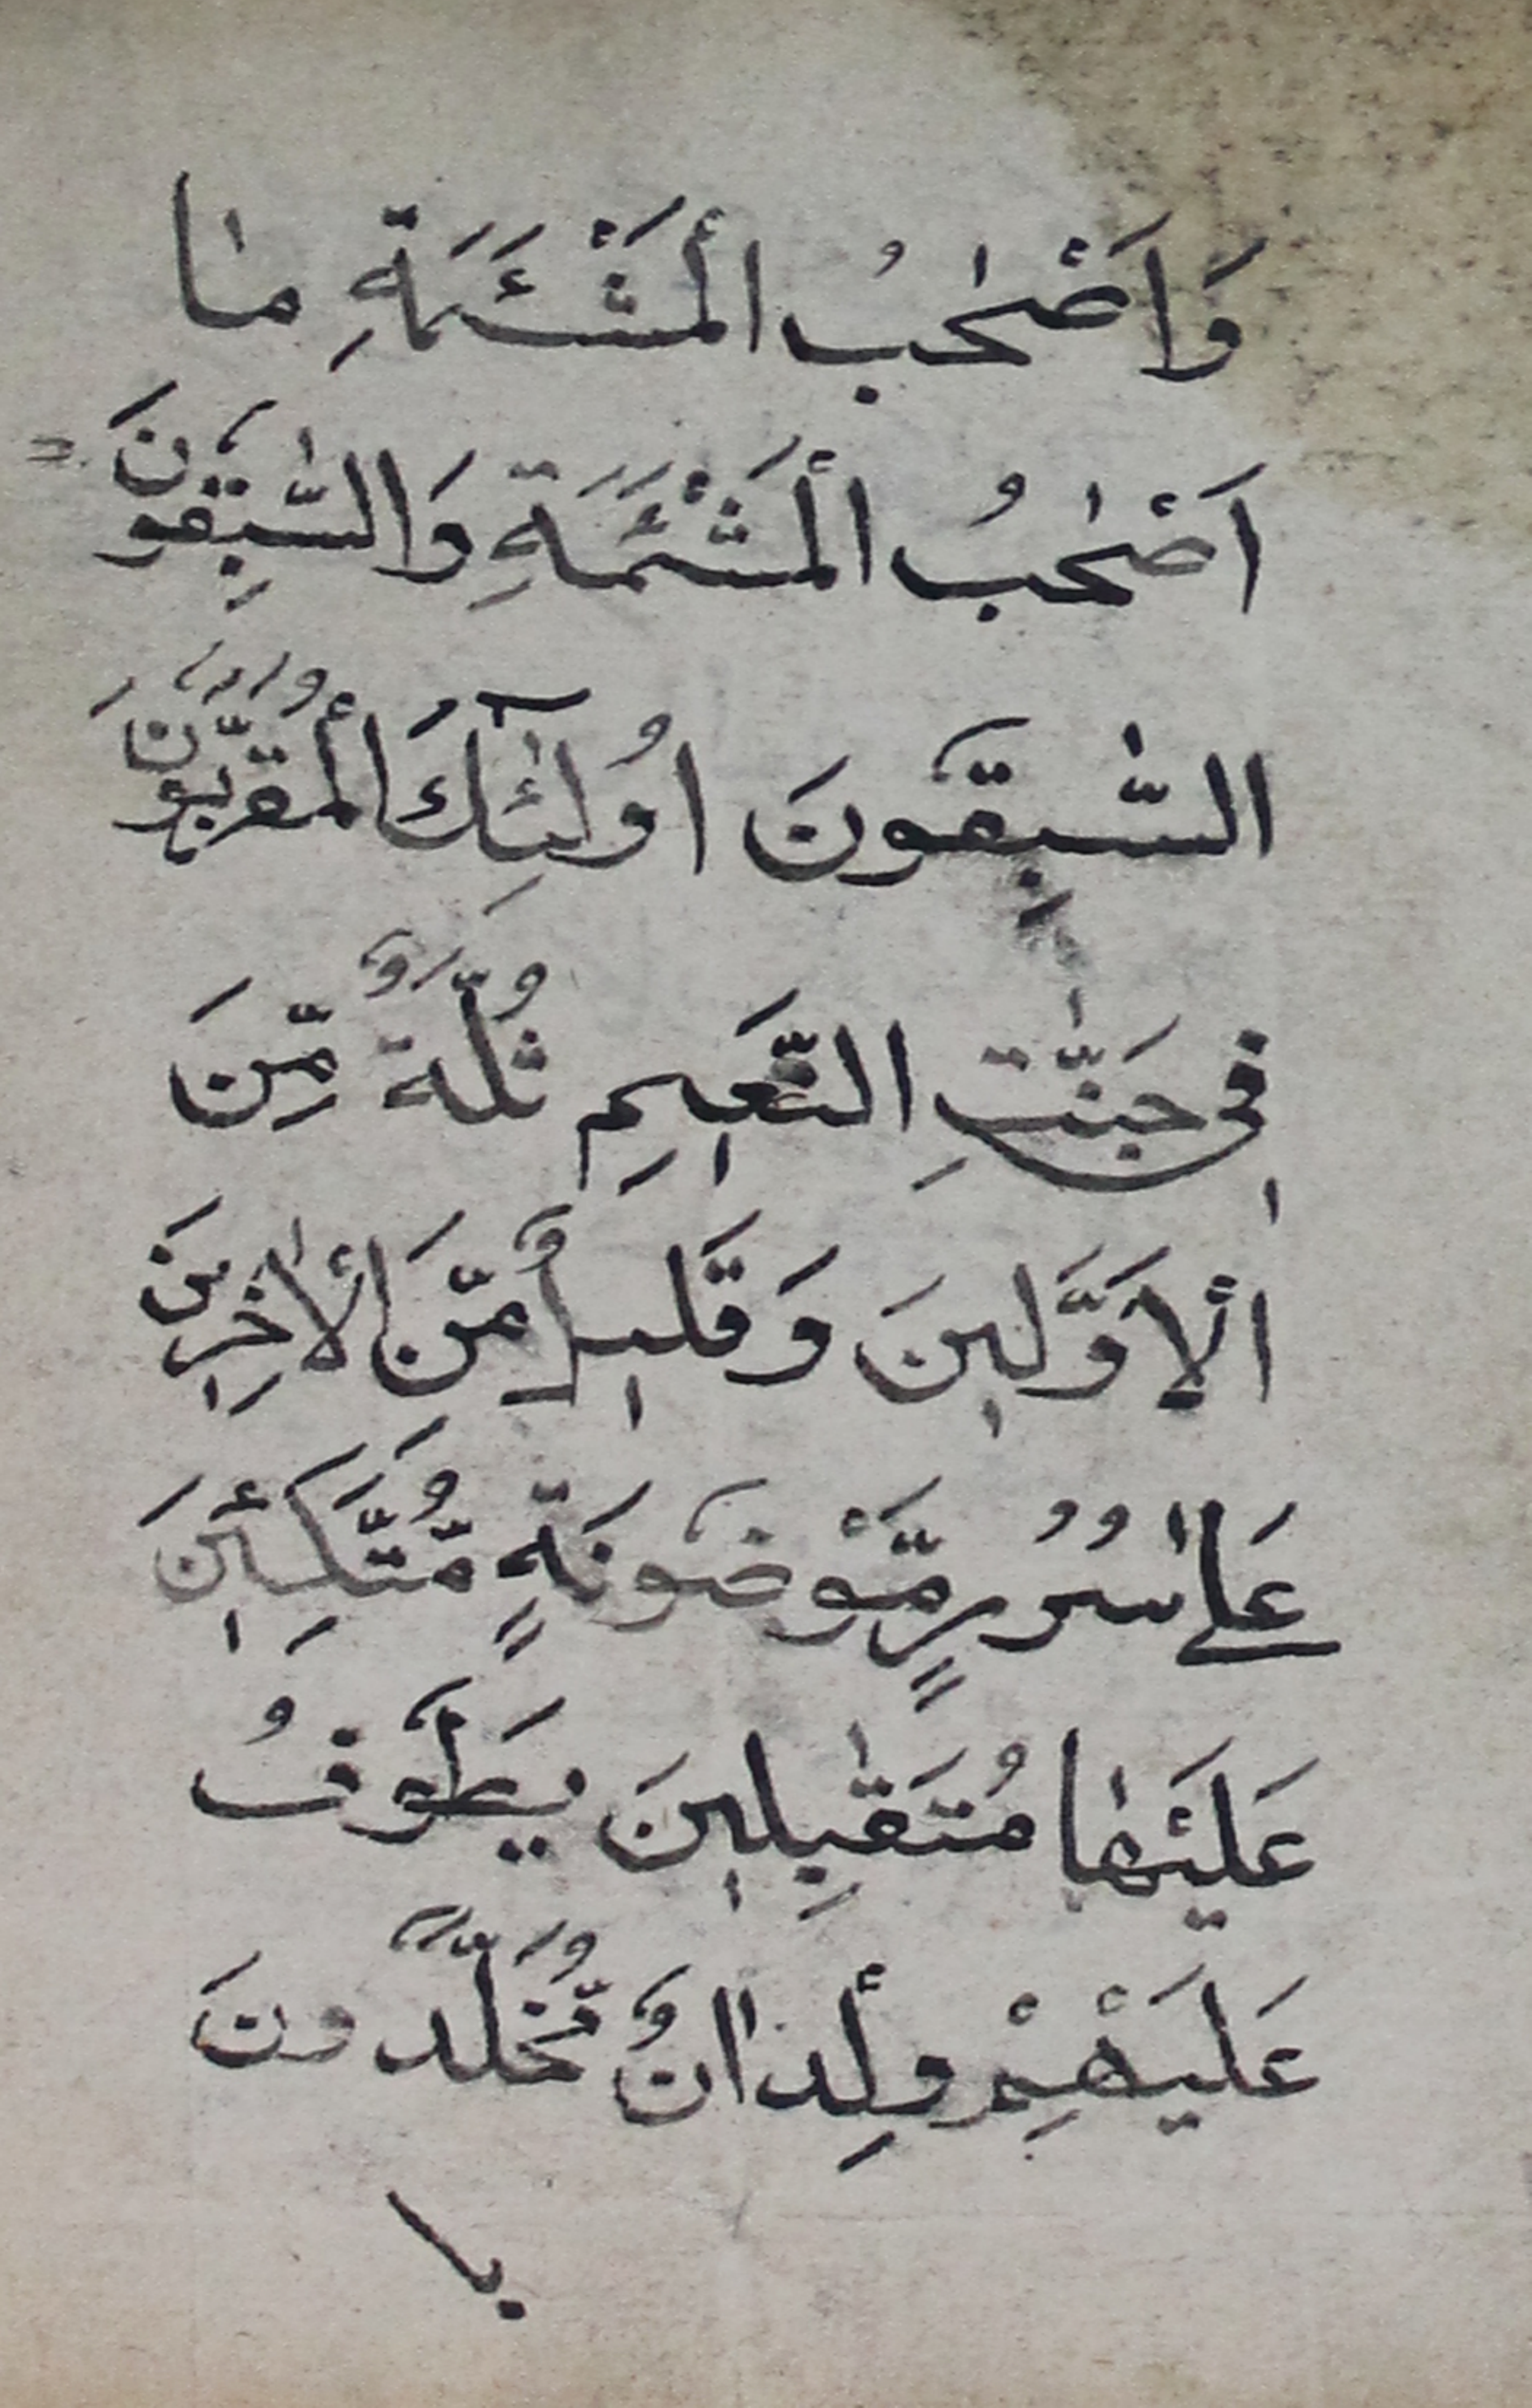 وَاَصْحٰبُ الْمَشْئَمَةِ مٰا
اَصْحٰبُ الْمَشْئَمَةِ وَالسّٰبِقُونَ
السّٰبِقُونَ اُولٰٓئِكَ الْمُقَرَّبُونَ
فِى جَنّٰتِ النَّعِيمِ ثُلَّةٌ مِّنَ
الْاَوَّلِينَ وَقَلِيلٌ مِّنَ الْاٰخِرِينَ
عَلٰى سُرُرٍ مَّوْضُونَةٍ مُّتَّكِئِينَ
عَلَيْهٰا مُتَقٰبِلِينَ يَطُوفُ
عَلَيْهِمْ وِلْدٰانٌ مُّخَلَّدُونَ
با